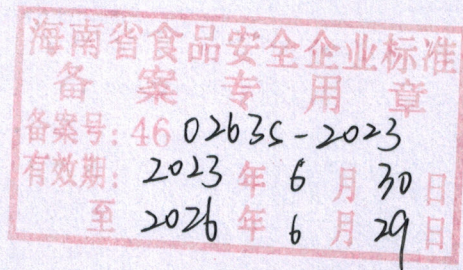 海南省食品安全企业标准
备案专用章
备案号：46 0263S-2023
有效期：2023年6月30日
至2026年6月29日